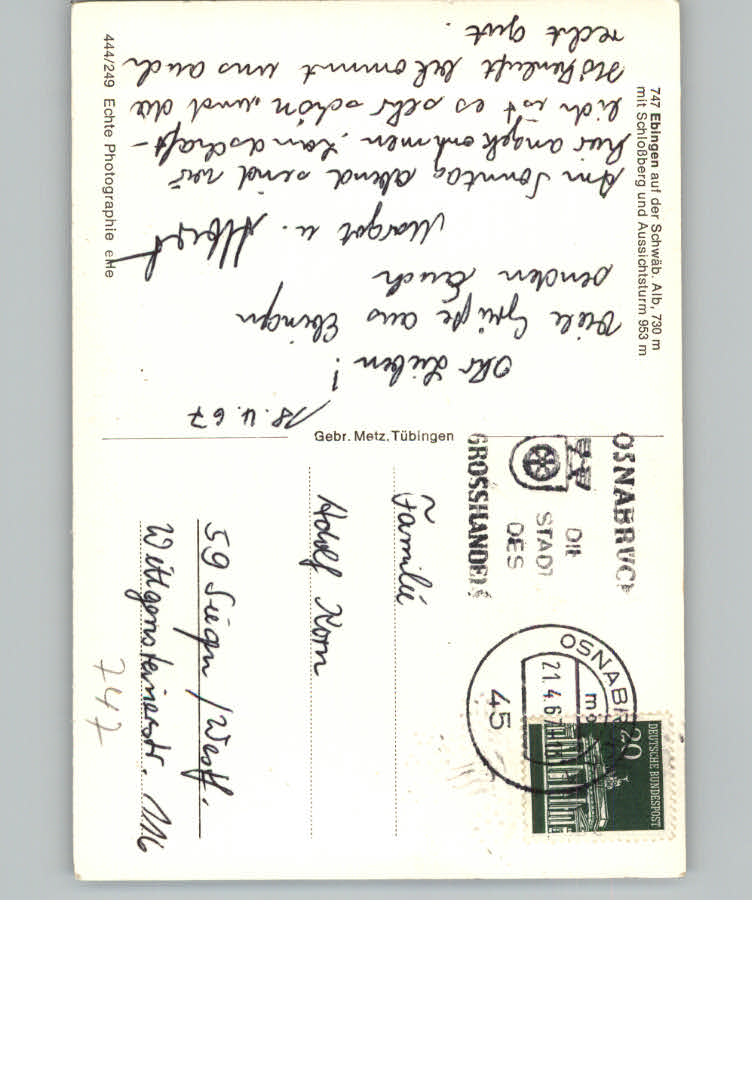 18.4.67
Ihr Lieben!
Viele Grüße aus Ebingen
senden Euch
Margot u. Albert
Am Sonntag abend sind wir
hier angekommen. Landschaft-
lich ist es sehr schön und die
Höhenluft bekommt uns auch
recht gut.
747 Ebingen auf der Schwäb. Alb, 730 m
mit Schloßberg und Aussichtsturm 953 m
444/249 Echte Photographie
Gebr. Metz, Tübingen
OSNABRÜCK
DIE
STADT
DES
GROSSHANDELS
OSNABRÜCK
21.4.67
45
20
DEUTSCHE BUNDESPOST
Familie
Adolf Korn
59 Siegen / Westf.
Wittgensteinerstr. 116
747